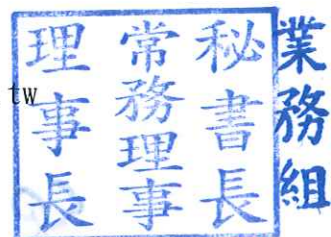 業務組
秘書長
常務理事
理事長
tw